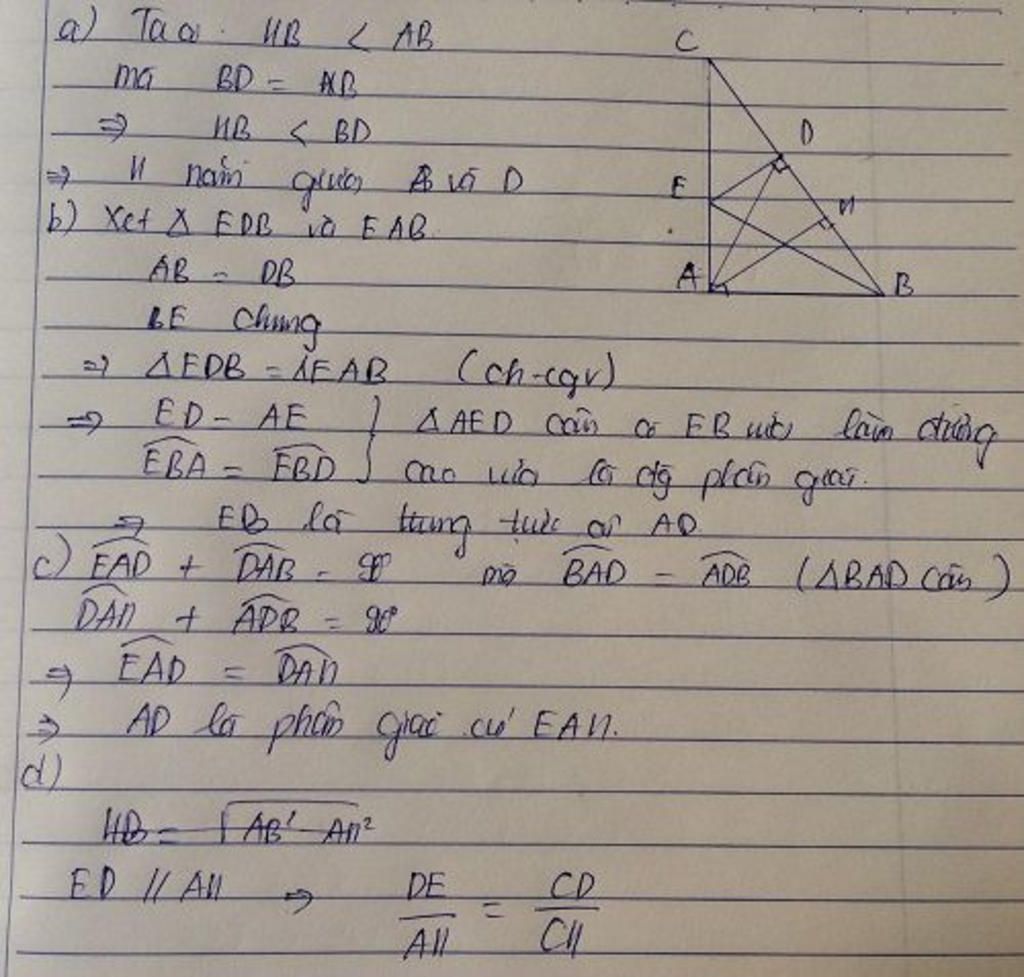 a) Ta có HB < AB
mà BD = AB
⇒ HB < BD
⇒ H nằm giữa B và D
b) Xét Δ EDB và EAB
AB = DB
BE chung
⇒ ΔEDB = ΔEAB (ch-cgv)
⇒ ED = AE } ΔAED cân có EB vừa làm đường
EBA = EBD } cao vừa là đg phân giác.
⇒ EB là trung trực của AD
c) EAD + DAB = 90° mà BAD = ADB (ΔBAD cân)
DAH + ADB = 90°
⇒ EAD = DAH
⇒ AD là phân giác của EAH.
d)
HB = √AB² - AH²
ED // AH ⇒ DE/AH = CD/CH
C
D
E
H
A
B